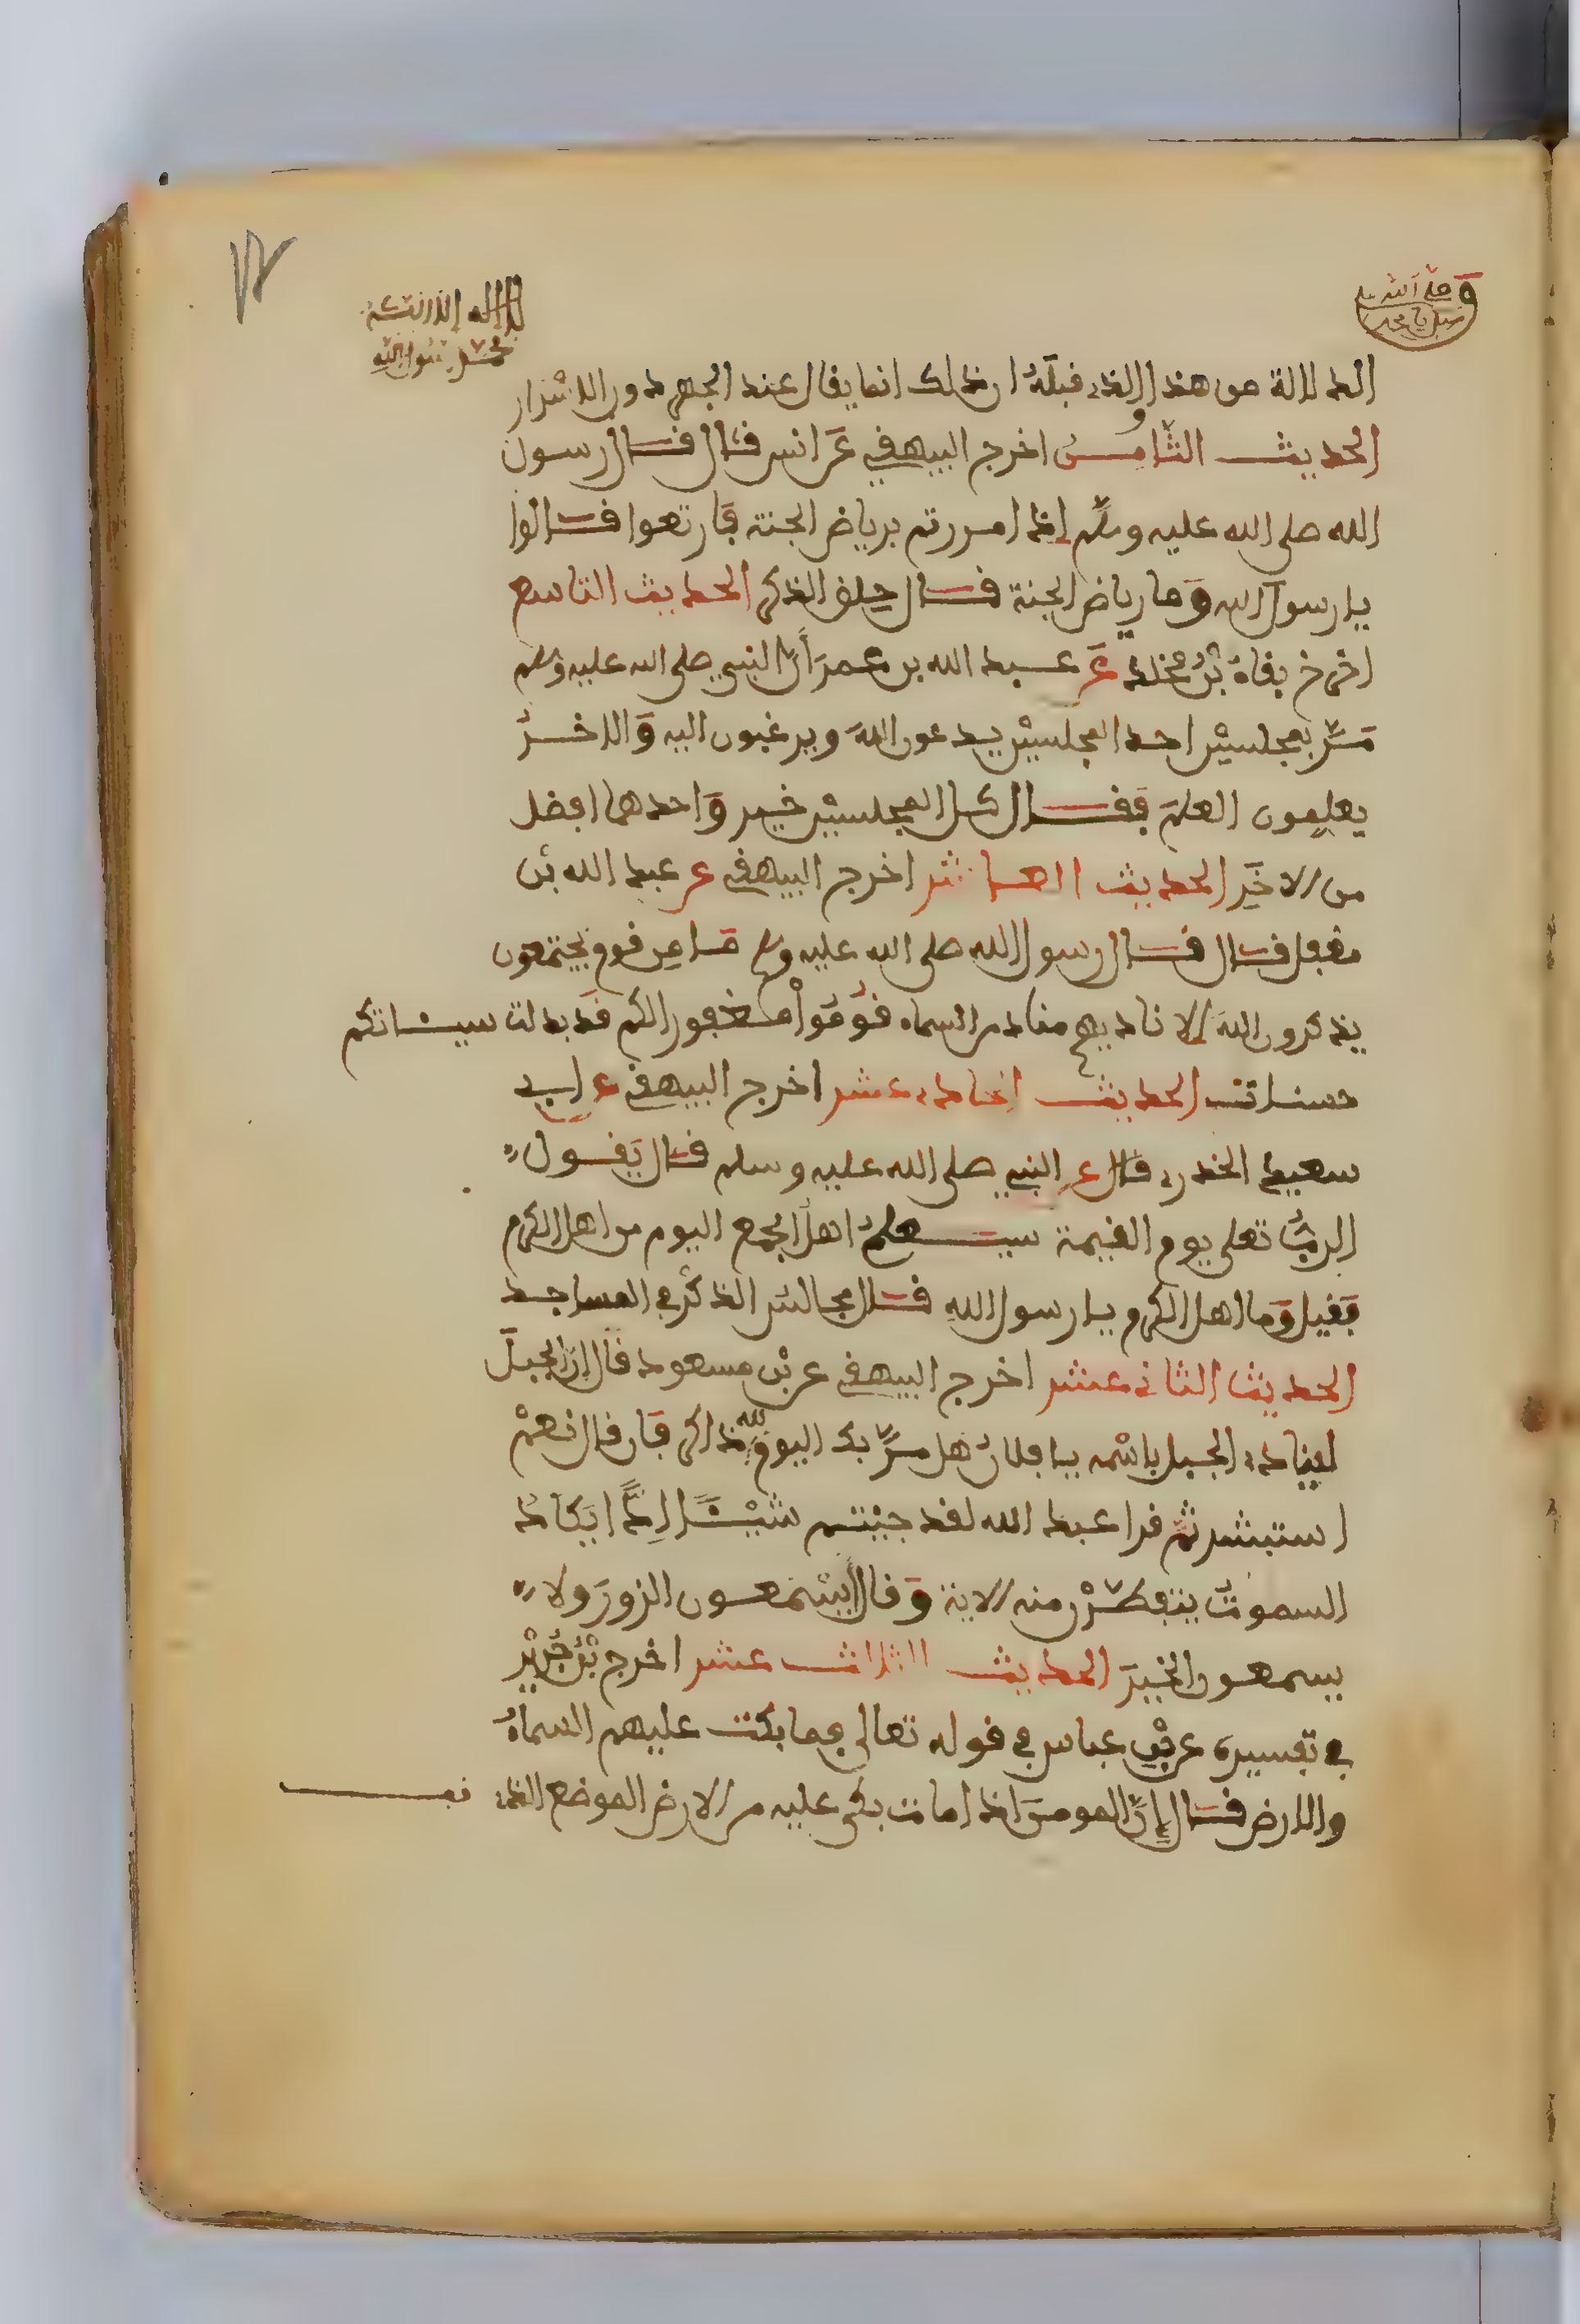 وصلى الله على سيدنا محمد
لا إله إلا الله
محمد رسول الله
الدلالة من هذا والذي قبله ان ذلك انما يقال عند الجهر دون الاسرار
الحديث الثامن اخرج البيهقي عن انس قال قال رسول
الله صلى الله عليه وسلم إذا مررتم برياض الجنة فارتعوا قالوا
يا رسول الله وما رياض الجنة قال حلق الذكر الحديث التاسع
اخرج بقاء بن مخلد عن عبد الله بن عمر أن النبي صلى الله عليه وسلم
مر بمجلسين احد المجلسين يدعون الله ويرغبون اليه والاخر
يعلمون العلم فقال كل المجلسين خير واحدهما افضل
من الاخر الحديث العاشر اخرج البيهقي عن عبد الله بن
مغفل قال قال رسول الله صلى الله عليه وسلم ما من قوم يجتمعون
يذكرون الله الا ناديهم مناد من السماء قوموا مغفورا لكم قد بدلت سيئاتكم
حسنات الحديث احادي عشر اخرج البيهقي عن ابي
سعيد الخدري قال عن النبي صلى الله عليه وسلم قال يقول
الرب تعلى يوم القيمة سيعلم اهل الجمع اليوم من اهل الكرم
فقيل وما اهل الكرم يا رسول الله قال مجالس الذكر في المساجد
الحديث الثاني عشر اخرج البيهقي عن بن مسعود قال إن الجبل
لينادي الجبل باسمه يا فلان هل مر بك اليوم لله ذاكر فان قال نعم
استبشر ثم قرا عبد الله لقد جئتم شيئا إدا يكاد
السموت يتفطرن منه الاية وقال أيسمعون الزور ولا
يسمعون الخير الحديث الثالث عشر اخرج بن جرير
في تفسيره عن بن عباس في قوله تعالى فما بكت عليهم السماء
والارض قال إن المومن اذا مات بكى عليه من الارض الموضع الذي